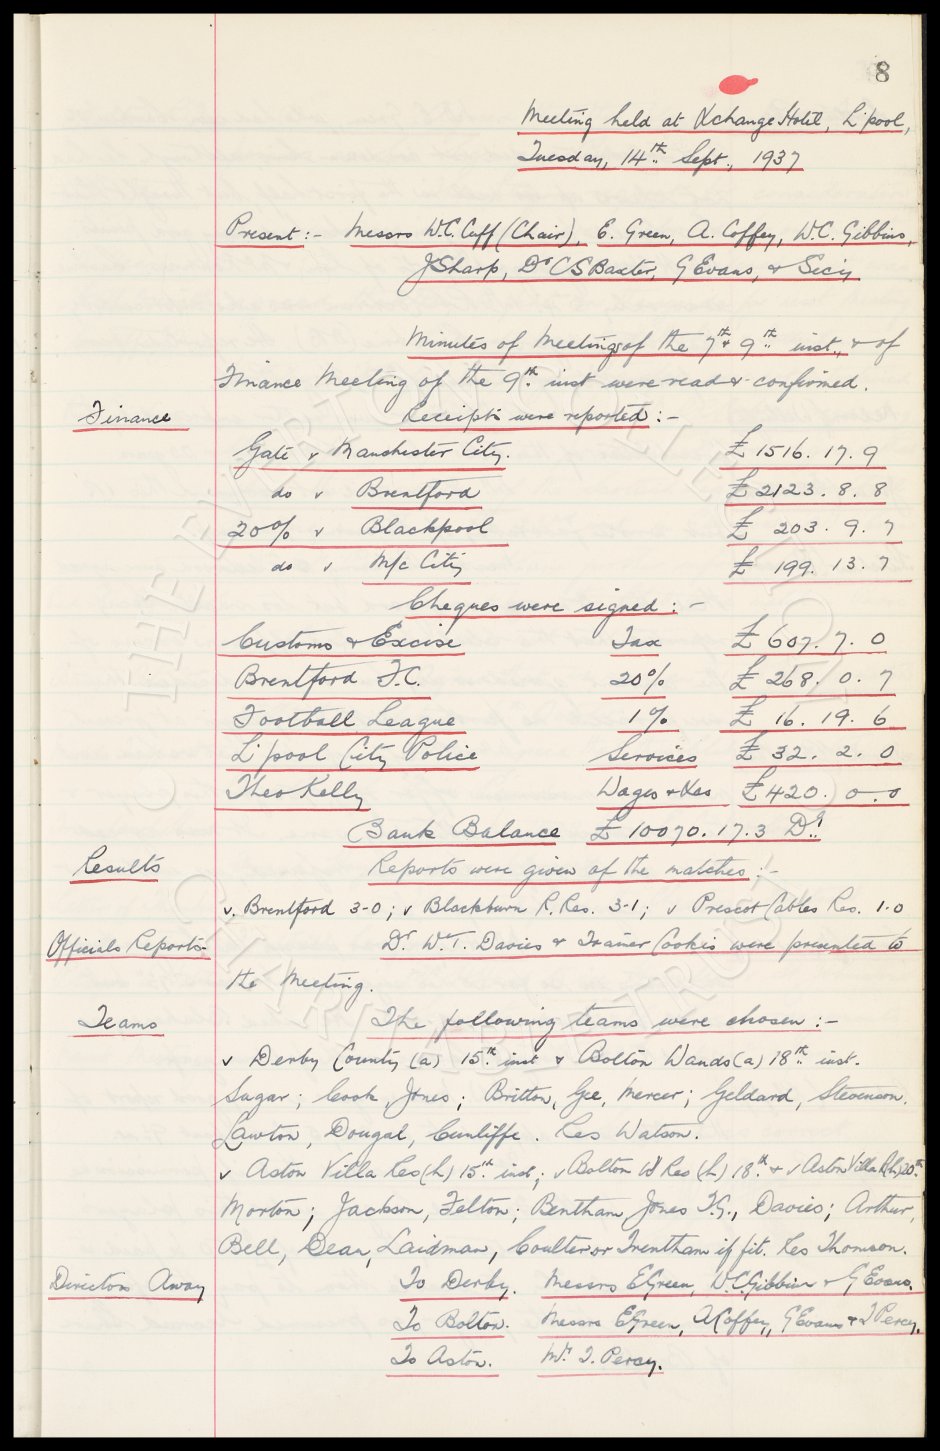 8
Meeting held at Xchange Hotel, L'pool,
Tuesday, 14th Sept., 1937
Present:- Messrs W.C. Cuff (Chair), E. Green, A. Coffey, W.C. Gibbins,
J Sharp, Dr C S Baxter, G Evans, & Sec'y
Minutes of Meetings of the 7th & 9th inst., & of
Finance Meeting of the 9th inst were read & confirmed.
Finance Receipts were reported:-
Gate v Manchester City. £1516.17.9
do v Brentford £2123.8.8
20% v Blackpool £ 203.9.7
do v M/c City £ 199.13.7
Cheques were signed:-
Customs & Excise Tax £607.7.0
Brentford F.C. 20% £268.0.7
Football League 1% £ 16.19.6
L'pool City Police Services £ 32.2.0
Theo Kelly Wages & Xes £420.0.0
Bank Balance £10070.17.3 Dr.
Results Reports were given of the matches:-
v. Brentford 3-0; v Blackburn R. Res. 3-1; v Prescot Cables Res. 1-0
Officials Reports- Dr. W.T. Davies & Trainer Cooke's were presented to
the Meeting.
Teams The following teams were chosen:-
v Derby County (a) 15th inst & Bolton Wands (a) 18th inst.
Sagar; Cook, Jones; Britton, Gee, Mercer; Geldard, Stevenson,
Lawton, Dougal, Cunliffe. Res Watson.
v Aston Villa Res (h) 15th inst; v Bolton W Res (h) 18th & v Aston Villa R (h) 20th
Morton; Jackson, Felton; Bentham, Jones T.G., Davies; Arthur,
Bell, Dean, Laidman, Coulter or Trentham if fit. Res Thomson.
Directors Away To Derby. Messrs E Green, W.C. Gibbins & G Evans.
To Bolton. Messrs E Green, A Coffey, G Evans & T Percy.
To Aston. Mr. T. Percy.
THE EVERTON COLLECTION CHARITABLE TRUST